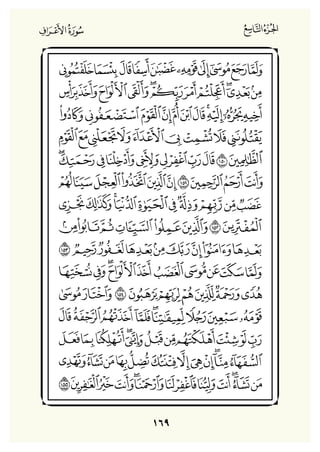 الجُزْءُ التَّاسِعُ
سُورَةُ الأَعْرَافِ
وَلَمَّا رَجَعَ مُوسَىٰٓ إِلَىٰ قَوْمِهِۦ غَضْبَٰنَ أَسِفًا قَالَ بِئْسَمَا خَلَفْتُمُونِي
مِنۢ بَعْدِيٓ ۖ أَعَجِلْتُمْ أَمْرَ رَبِّكُمْ ۖ وَأَلْقَى ٱلْأَلْوَاحَ وَأَخَذَ بِرَأْسِ
أَخِيهِ يَجُرُّهُۥٓ إِلَيْهِ ۚ قَالَ ٱبْنَ أُمَّ إِنَّ ٱلْقَوْمَ ٱسْتَضْعَفُونِي وَكَادُوا۟
يَقْتُلُونَنِي فَلَا تُشْمِتْ بِيَ ٱلْأَعْدَآءَ وَلَا تَجْعَلْنِي مَعَ ٱلْقَوْمِ
ٱلظَّٰلِمِينَ ١٥٠ قَالَ رَبِّ ٱغْفِرْ لِي وَلِأَخِي وَأَدْخِلْنَا فِي رَحْمَتِكَ ۖ
وَأَنتَ أَرْحَمُ ٱلرَّٰحِمِينَ ١٥١ إِنَّ ٱلَّذِينَ ٱتَّخَذُوا۟ ٱلْعِجْلَ سَيَنَالُهُمْ
غَضَبٌ مِّن رَّبِّهِمْ وَذِلَّةٌ فِي ٱلْحَيَوٰةِ ٱلدُّنْيَا ۚ وَكَذَٰلِكَ نَجْزِي
ٱلْمُفْتَرِينَ ١٥٢ وَٱلَّذِينَ عَمِلُوا۟ ٱلسَّيِّـَٔاتِ ثُمَّ تَابُوا۟ مِنۢ
بَعْدِهَا وَءَامَنُوٓا۟ إِنَّ رَبَّكَ مِنۢ بَعْدِهَا لَغَفُورٌ رَّحِيمٌ ١٥٣
وَلَمَّا سَكَتَ عَن مُّوسَى ٱلْغَضَبُ أَخَذَ ٱلْأَلْوَاحَ ۖ وَفِي نُسْخَتِهَا
هُدًى وَرَحْمَةٌ لِّلَّذِينَ هُمْ لِرَبِّهِمْ يَرْهَبُونَ ١٥٤ وَٱخْتَارَ مُوسَىٰ
قَوْمَهُۥ سَبْعِينَ رَجُلًا لِّمِيقَٰتِنَا ۖ فَلَمَّآ أَخَذَتْهُمُ ٱلرَّجْفَةُ قَالَ
رَبِّ لَوْ شِئْتَ أَهْلَكْتَهُم مِّن قَبْلُ وَإِيَّٰيَ ۖ أَتُهْلِكُنَا بِمَا فَعَلَ
ٱلسُّفَهَآءُ مِنَّآ ۖ إِنْ هِيَ إِلَّا فِتْنَتُكَ تُضِلُّ بِهَا مَن تَشَآءُ وَتَهْدِي
مَن تَشَآءُ ۖ أَنتَ وَلِيُّنَا فَٱغْفِرْ لَنَا وَٱرْحَمْنَا ۖ وَأَنتَ خَيْرُ ٱلْغَٰفِرِينَ ١٥٥
١٦٩